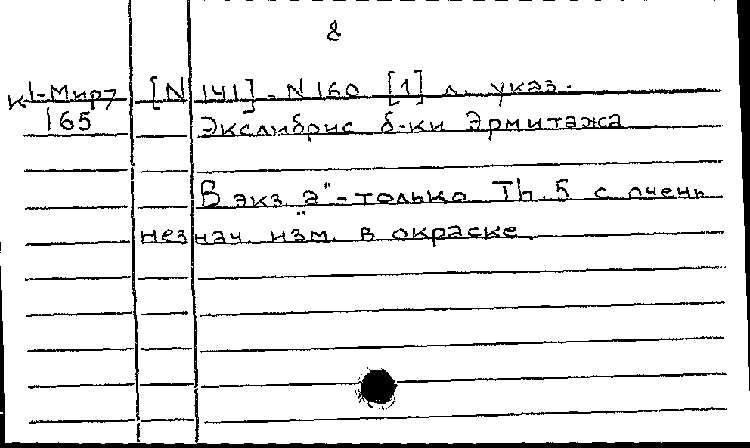 2
К1-Мир7 [N 141] - N 160 [1] л. указ.
165 Экслибрис б-ки Эрмитажа
В экз „2" - только Th. 5 с очень
незнач. изм. в окраске.